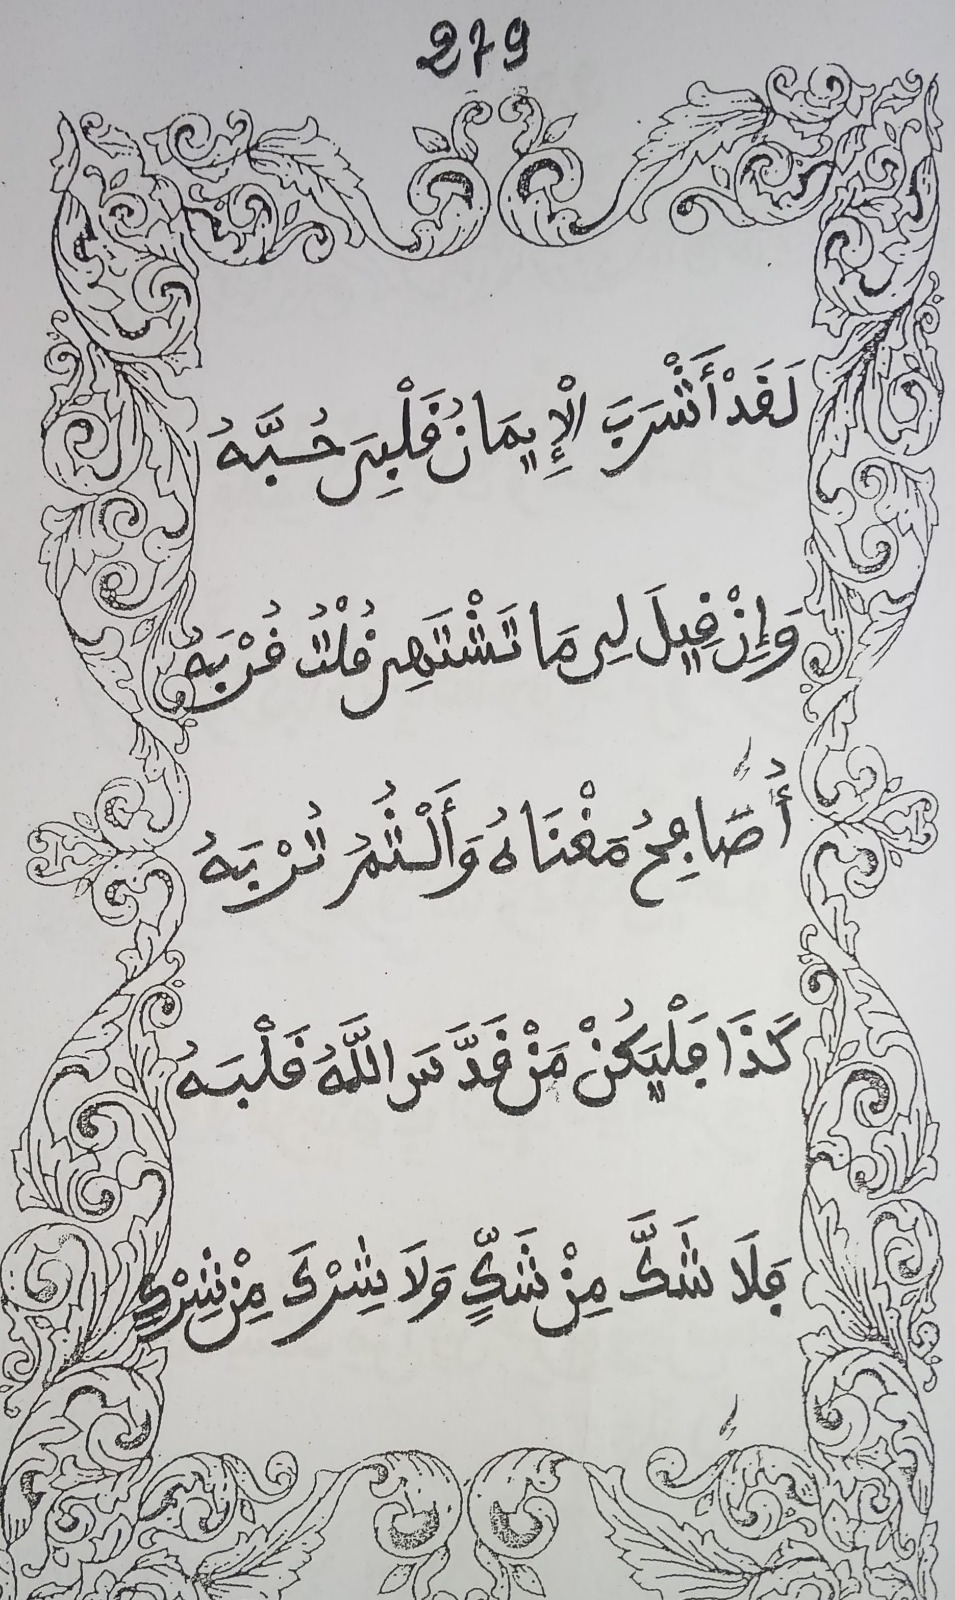 279
لَقَدْ أَشْرَبَ الْإِيمَانُ قَلْبِي حُبَّهُ
وَإِنْ قِيلَ لِي مَا تَشْتَهِي قُلْتُ قُرْبَهُ
أُصَافِحُ مَغْنَاهُ وَأَلْثُمُ تُرْبَهُ
كَذَا فَلْيَكُنْ مَنْ قَدَّسَ اللَّهُ قَلْبَهُ
فَلَا شَكَّ مِنْ شَكٍّ وَلَا شِرْكَ مِنْ شِرْكِ